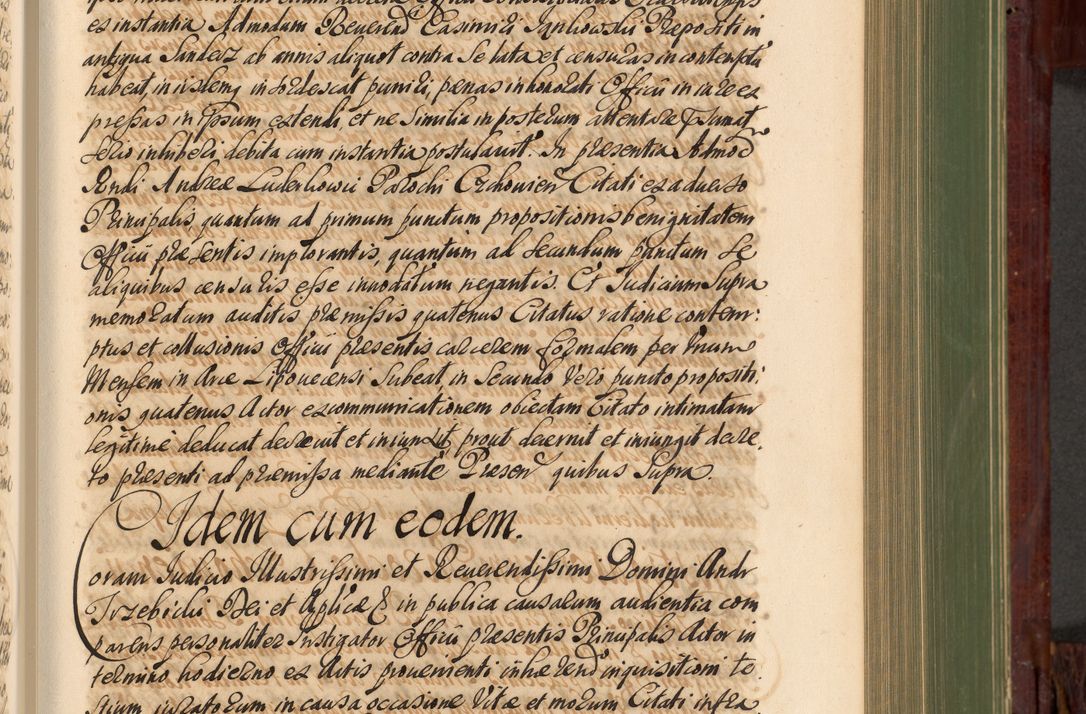 es instantia Admodum Reverend Casimiri Jankowski Præpositi in
antiqua Sandecz ab annis aliquot contra Se lata et censuras in contemptu
habeat, in iisdemq insordescat puniri, pænas in honorati Officii in iure ex
pressas in ipsum extendi, et ne Similia in posterum attentare
serio inhiberi debita cum instantia postulavit. In præsentia Admod
Rndi Andreæ Parochi Czchovien Citati ex adverso
Principalis, quantum ad primum punctum propositionis benignitatem
Officii præsentis implorantis, quantum ad secundum punctum se
aliquibus censuris esse innodatum negantis. Et Judicium Supra
memoratum auditis præmissis quatenus Citatus ratione contem:
ptus et collusionis Officii præsentis carcerem formalem per unum
Mensem in Arce Lipovecensi Subeat, in Secundo Vero puncto propositi:
onis quatenus Actor excommunicationem obiectam Citato intimatam
legitime deducat decrevit et iniunxit prout decernit et iniungit decre
to præsenti ad præmissa mediante Præsen quibus Supra.
Idem cum eodem.
Coram Judicio Illustrissimi et Reverendissimi Domini Andr
Trzebicki Dei et Aplicæ & in publica causarum audientia com
parens personaliter Instigator Officii præsentis Principalis Actor in
termino hodierno ex Actis provenienti inhærend inquisitioni te
stium iuratorum in causa occasione Vitæ et morum Citati infra